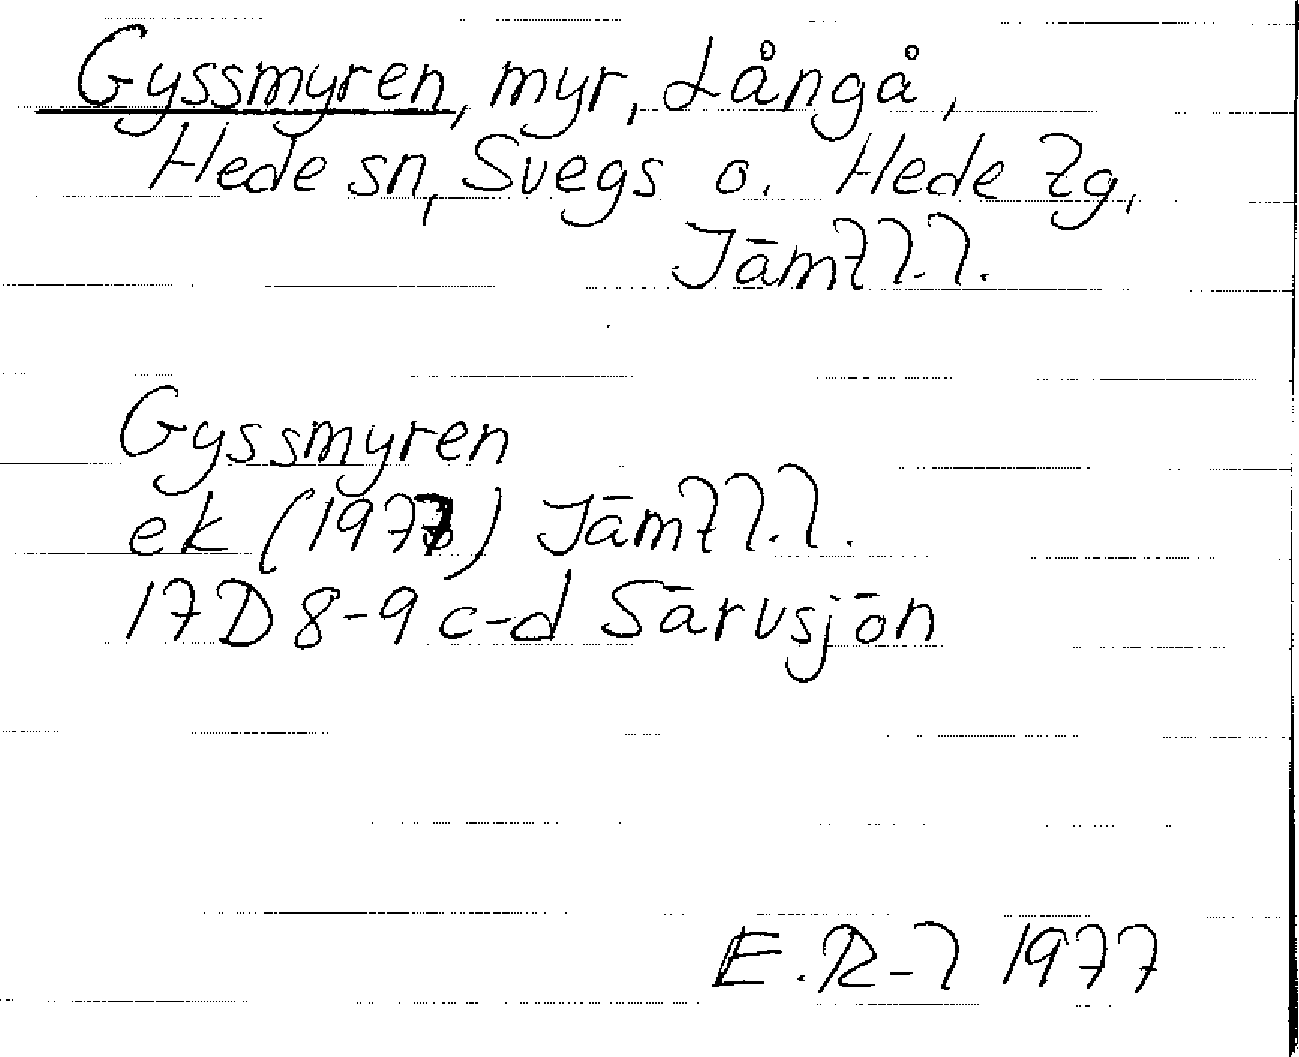 Gyssmyren, myr, Långå,
Hede sn, Svegs o. Hede tg,
Jämtl.l.
Gyssmyren
ek (1977) Jämtl.l.
17D 8-9 c-d Särvsjön
E.R-l 1977